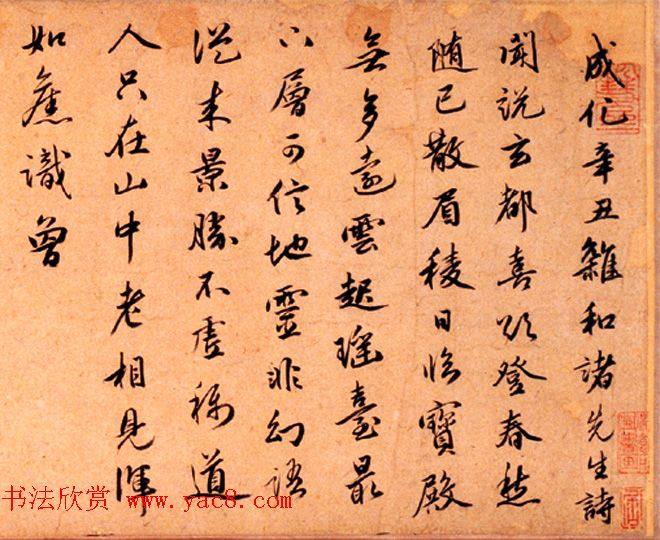 成化辛丑雜和諸先生詩
聞說玄都喜欲登春愁
随已散眉稜日臨寶殿
無多遠雲起瑶臺最
上層可信地靈非幻語
從来景勝不虛稱道
人只在山中老相見渾
如舊識曾
书法欣赏 www.yac8.com